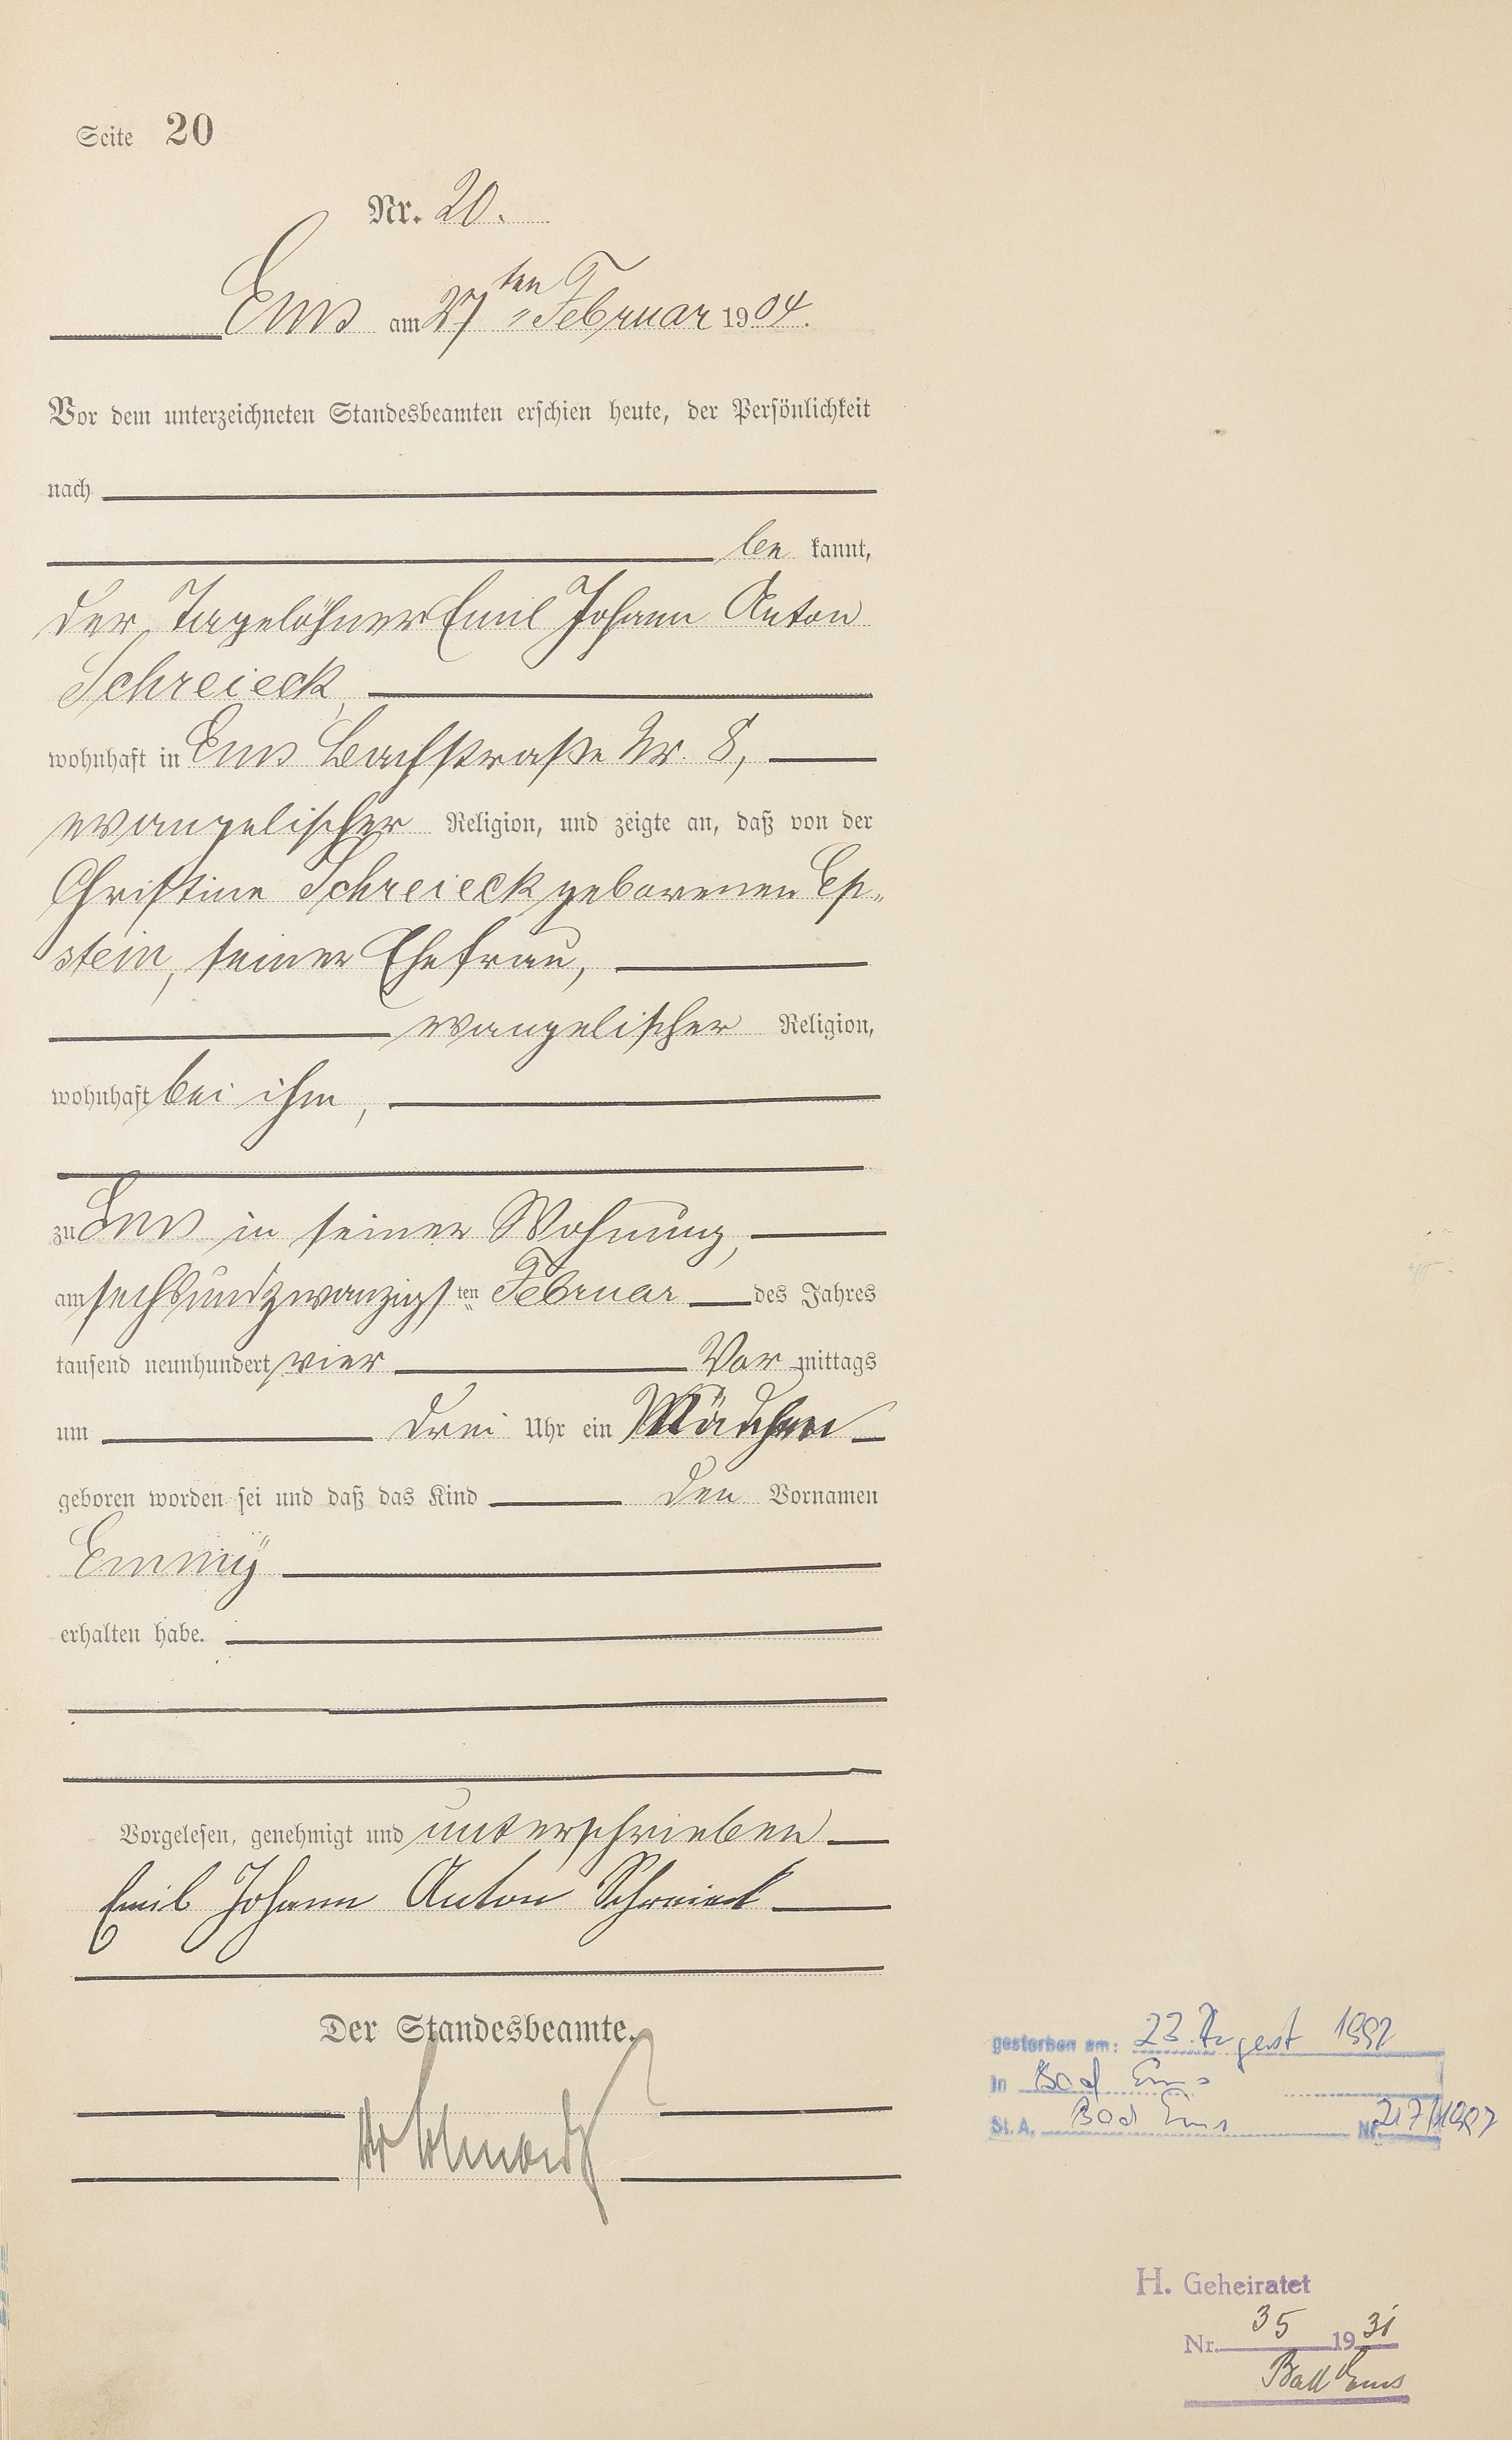 Seite 20
Nr. 20.
Ems am 27ten Februar 1904.
Vor dem unterzeichneten Standesbeamten erschien heute, der Persönlichkeit
nach
be kannt,
der Tagelöhner Emil Johann Anton
Schreieck,
wohnhaft in Ems Bachstraße Nr. 8,
evangelischer Religion, und zeigte an, daß von der
Christine Schreieck geborenen Ep-
stein, seiner Ehefrau,
evangelischer Religion,
wohnhaft bei ihm,
zu Ems in seiner Wohnung,
am sechsundzwanzigsten Februar des Jahres
tausend neunhundert vier Vor mittags
um drei Uhr ein Mädchen
geboren worden sei und daß das Kind den Vornamen
Emmÿ
erhalten habe.
Vorgelesen, genehmigt und unterschrieben
Emil Johann Anton Schreieck
Der Standesbeamte.
gestorben am: 23. August 1992
in Bad Ems
St. A. Bad Ems Nr. 217/1992
H. Geheiratet
Nr. 35 1931
Bad Ems